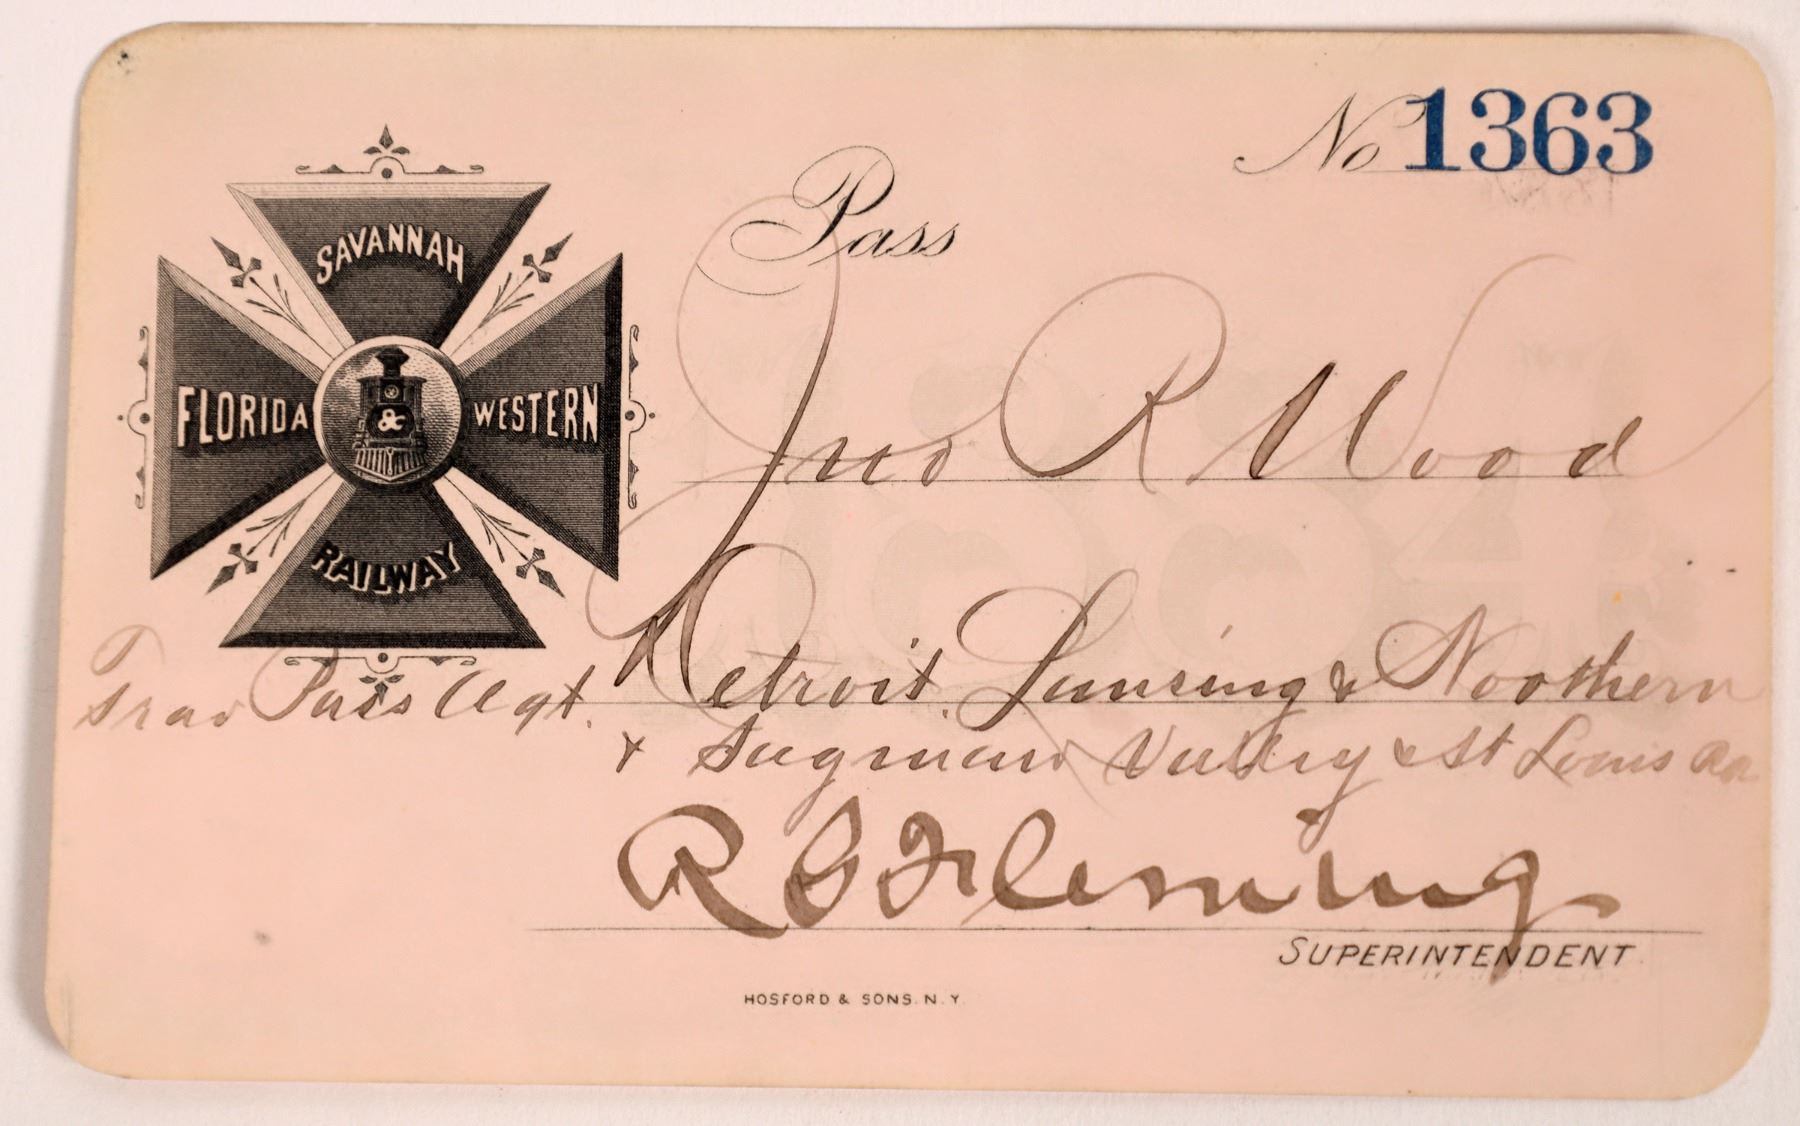 No 1363
Pass
SAVANNAH
FLORIDA & WESTERN
RAILWAY
Jno R Wood
Trav Pass Agt. Detroit, Lansing & Northern
& Saginaw Valley & St Louis RR
R G Fleming
SUPERINTENDENT.
HOSFORD & SONS. N. Y.